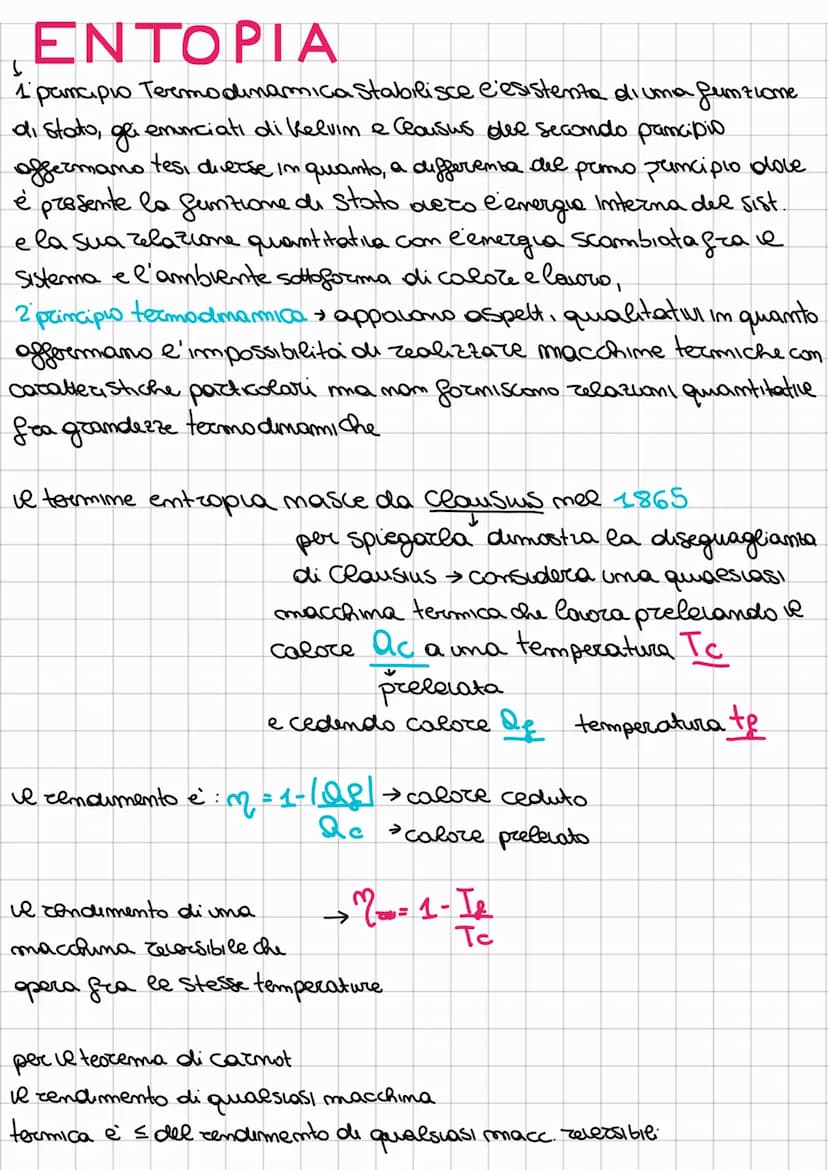 ENTOPIA
1° principio Termodinamica stabilisce l'esistenza di una funzione
di stato, gli enunciati di Kelvin e Clausius del secondo principio
affermano tesi diverse in quanto, a differenza del primo principio dove
è presente la funzione di stato verso l'energia interna del sist.
e la sua relazione quantitativa con l'energia scambiata fra il
sistema e l'ambiente sottoforma di calore e lavoro,
2° principio termodinamica → appaiono aspetti qualitativi in quanto
affermano l'impossibilità di realizzare macchine termiche con
caratteristiche particolari ma non forniscono relazioni quantitative
fra grandezze termodinamiche
il termine entropia nasce da Clausius nel 1865
per spiegarla dimostra la diseguaglianza
di Clausius → considera una qualsiasi
macchina termica che lavora prelevando il
calore Qc a una temperatura Tc
prelevata
e cedendo calore Qf temperatura tf
il rendimento è : η = 1 - |Qf| → calore ceduto
Qc → calore prelevato
il rendimento di una → η = 1 - Tf
macchina reversibile che Tc
opera fra le stesse temperature
per il teorema di carnot
il rendimento di qualsiasi macchina
termica è ≤ del rendimento di qualsiasi macc. reversibile